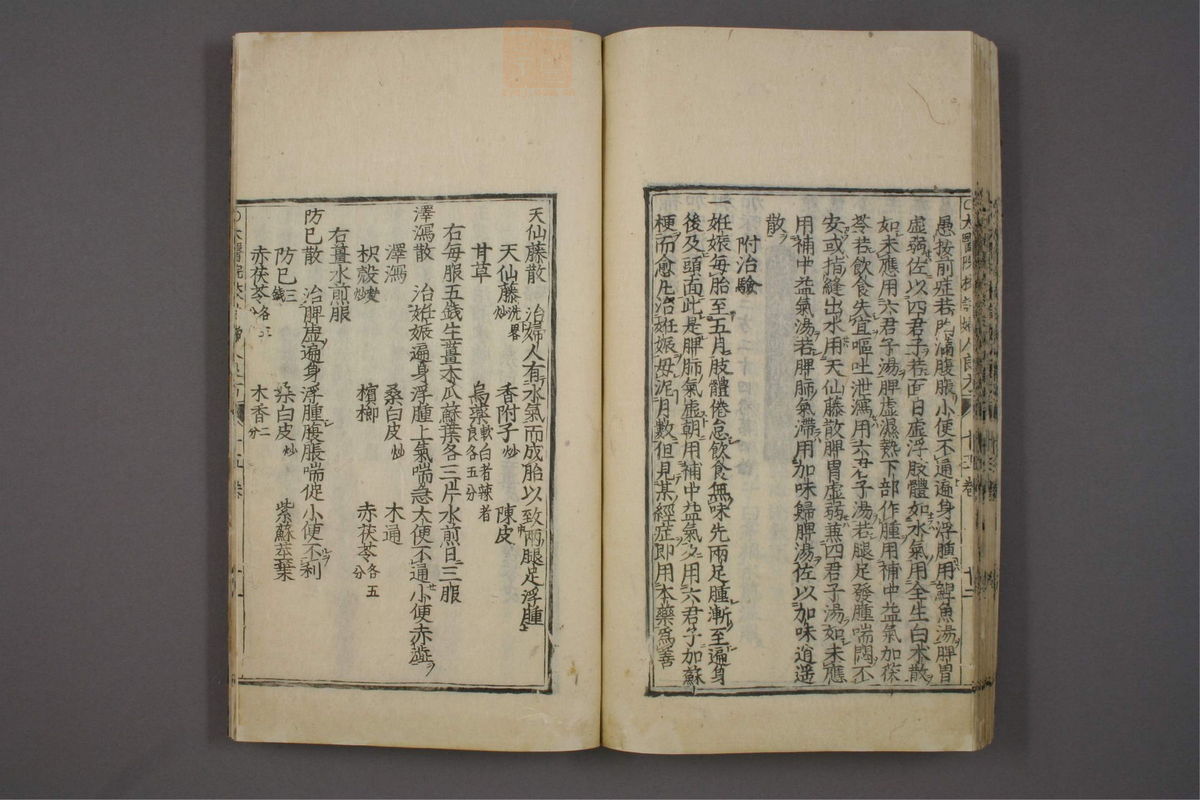 愚按前症若胸滿腹脹小便不通遍身浮腫用鯉魚湯脾胃
虛弱佐以四君子若面目虛浮肢體如水氣用全生白朮散
如未應用六君子湯脾虛濕熱下部作腫用補中益氣加茯
苓若飲食失宜嘔吐泄瀉用六君子湯若腿足發腫喘悶不
安或指縫出水用天仙藤散脾胃虛弱兼四君子湯如未應
用補中益氣湯若脾肺氣滯用加味歸脾湯佐以加味逍遥
散
附治驗
妊娠每胎至五月肢體倦怠飲食無味先兩足腫漸至遍身
後及頭面此是脾肺氣虛朝用補中益氣夕用六君子加蘇
梗而愈凡治妊娠毋泥月數但見某經症即用本藥爲善
天仙藤散 治婦人有水氣而成胎以致兩腿足浮腫
天仙藤洗畧炒 香附子炒 陳皮
甘草 烏藥軟白者辣者良各五分
右每服五錢生薑木瓜蘇葉各三片水煎日三服
澤瀉散 治妊娠遍身浮腫上氣喘急大便不通小便赤澁
澤瀉 桑白皮炒 木通
枳殼麩炒 檳榔 赤茯苓各五分
右薑水煎服
防已散 治脾虛遍身浮腫腹脹喘促小便不利
防已三錢 桑白皮炒 紫蘇莖葉
赤茯苓各三 木香二分